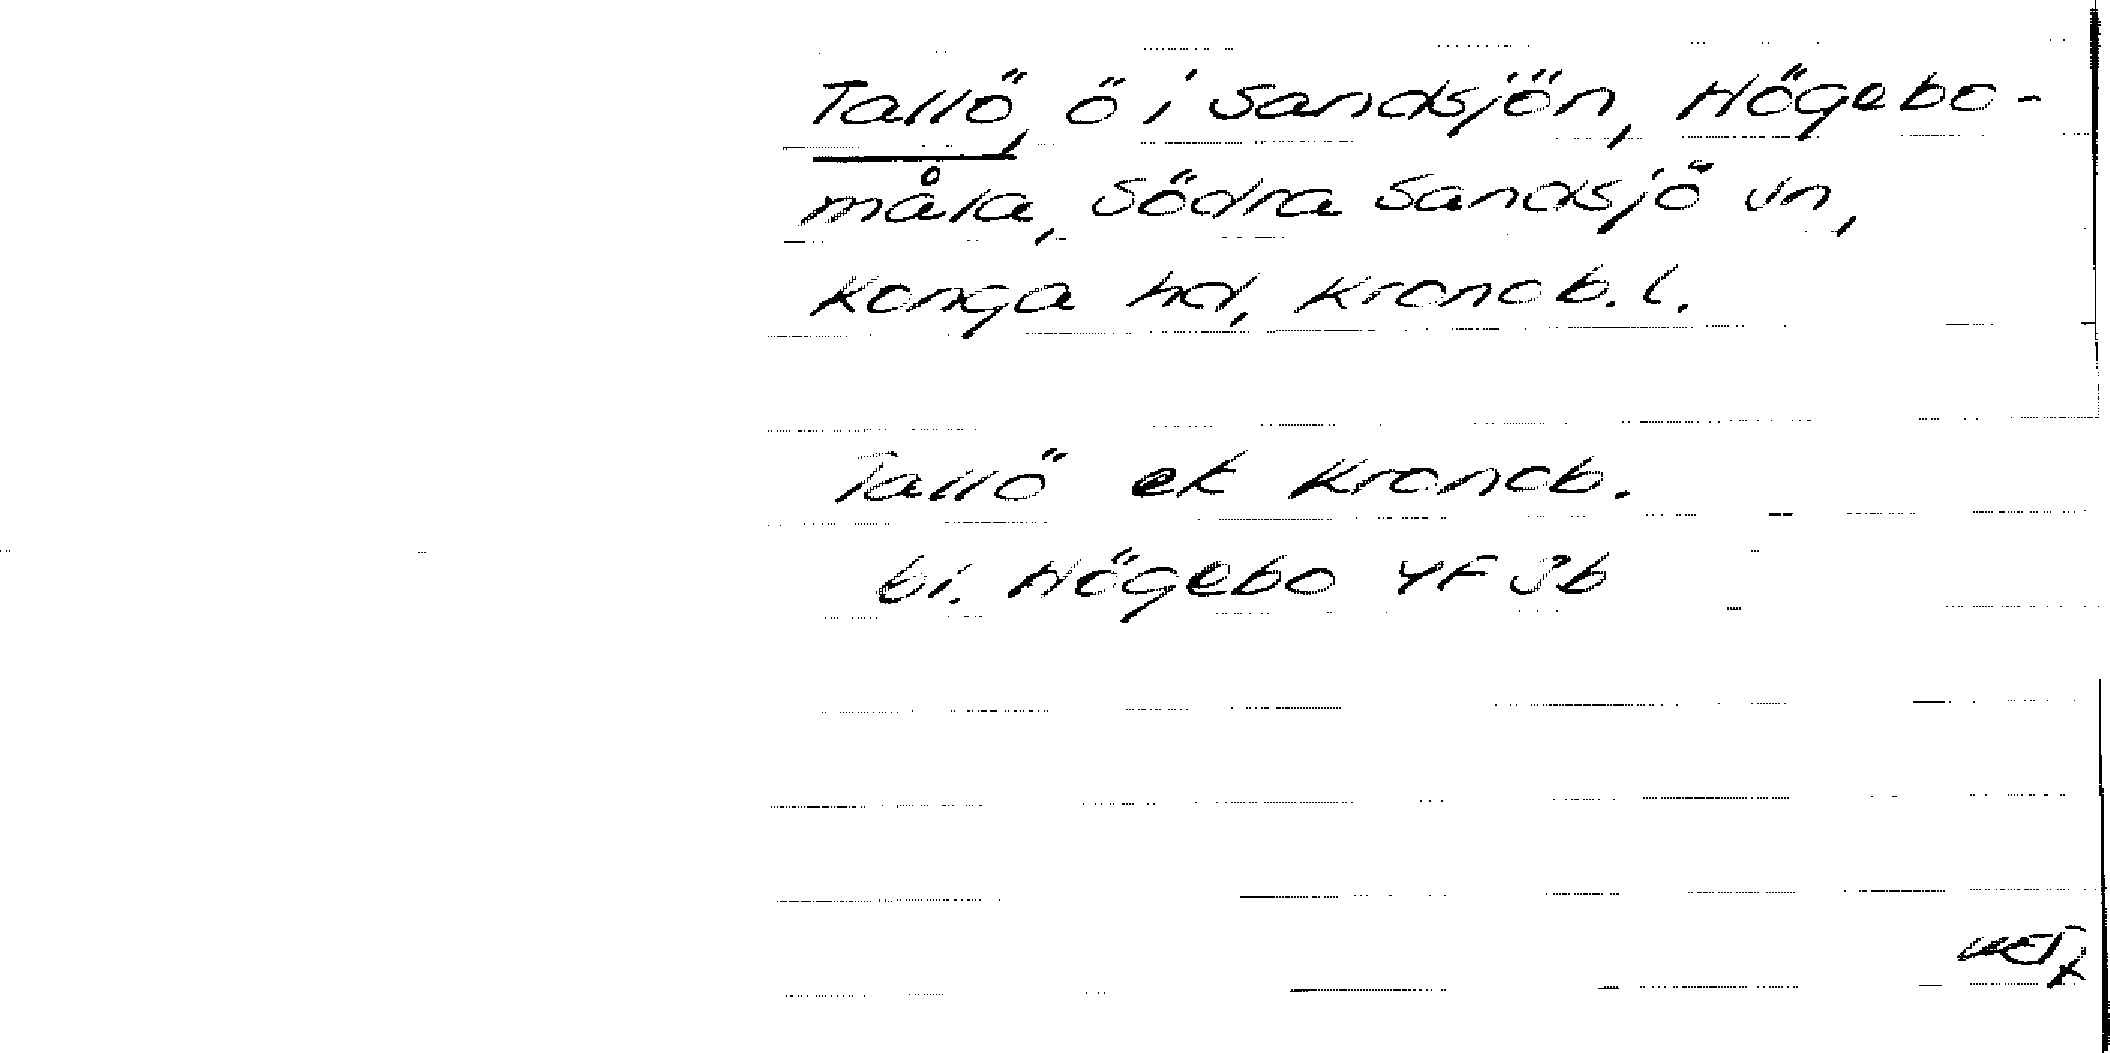 Tallö, ö i Sandsjön, Högebo-
måla, Södra Sandsjö sn,
Konga hd, Kronob. l.
Tallö ek Kronob.
bl. Högebo 4F Jb